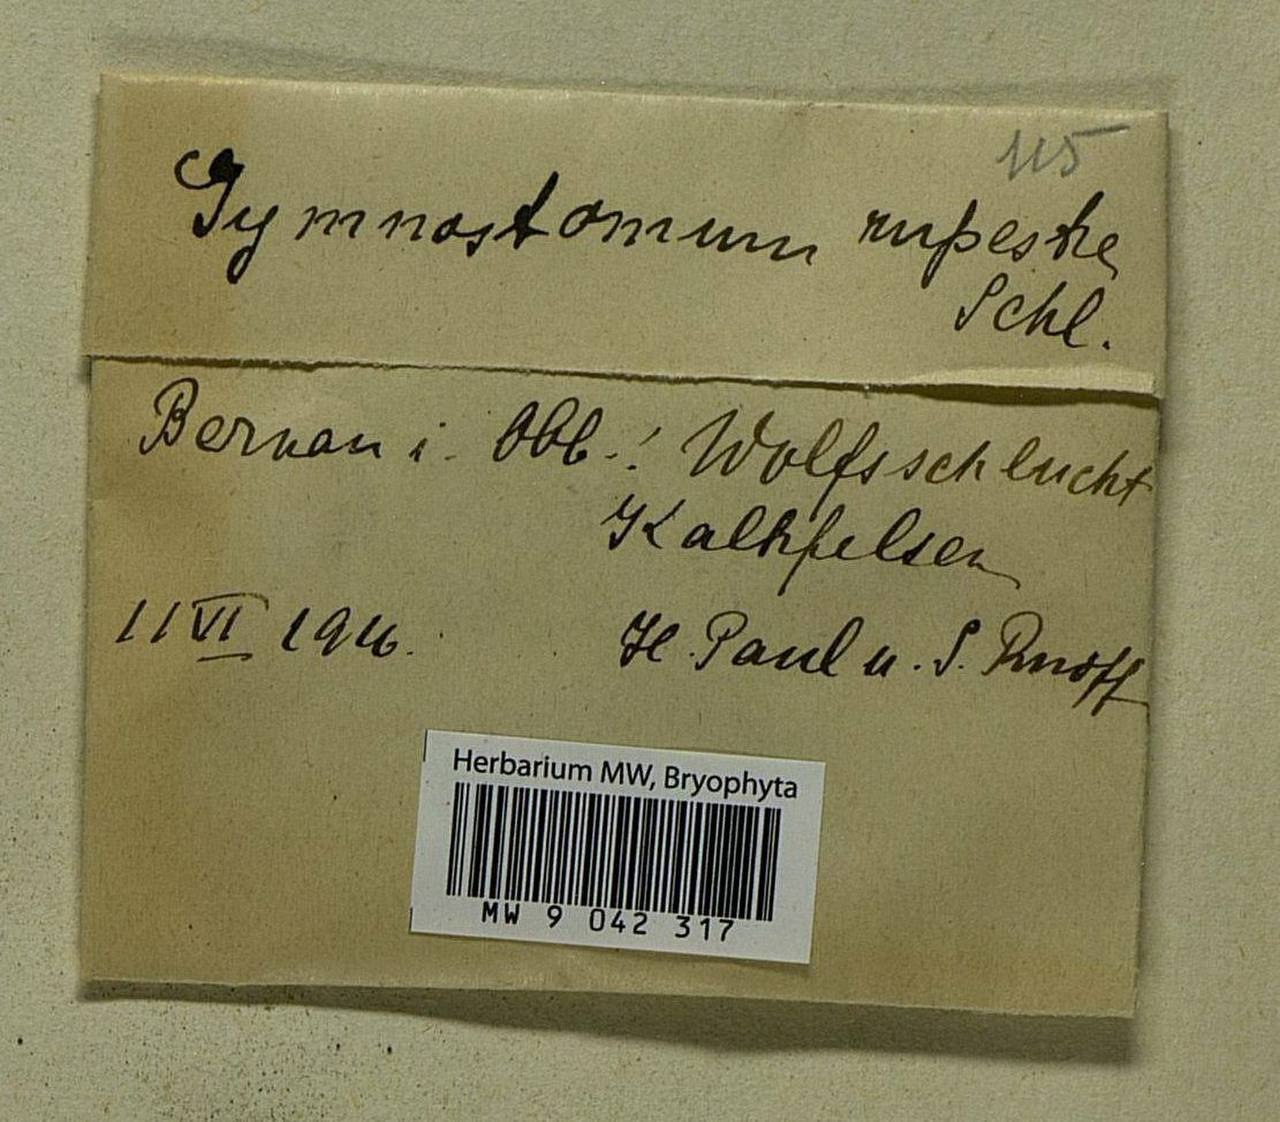 115
Gymnostomum rupestre
Schl.
Bernau i. Obb.: Wolfsschlucht
Kalkfelsen
11 VI 1916.
H. Paul u. S.
Herbarium MW, Bryophyta
MW 9 042 317